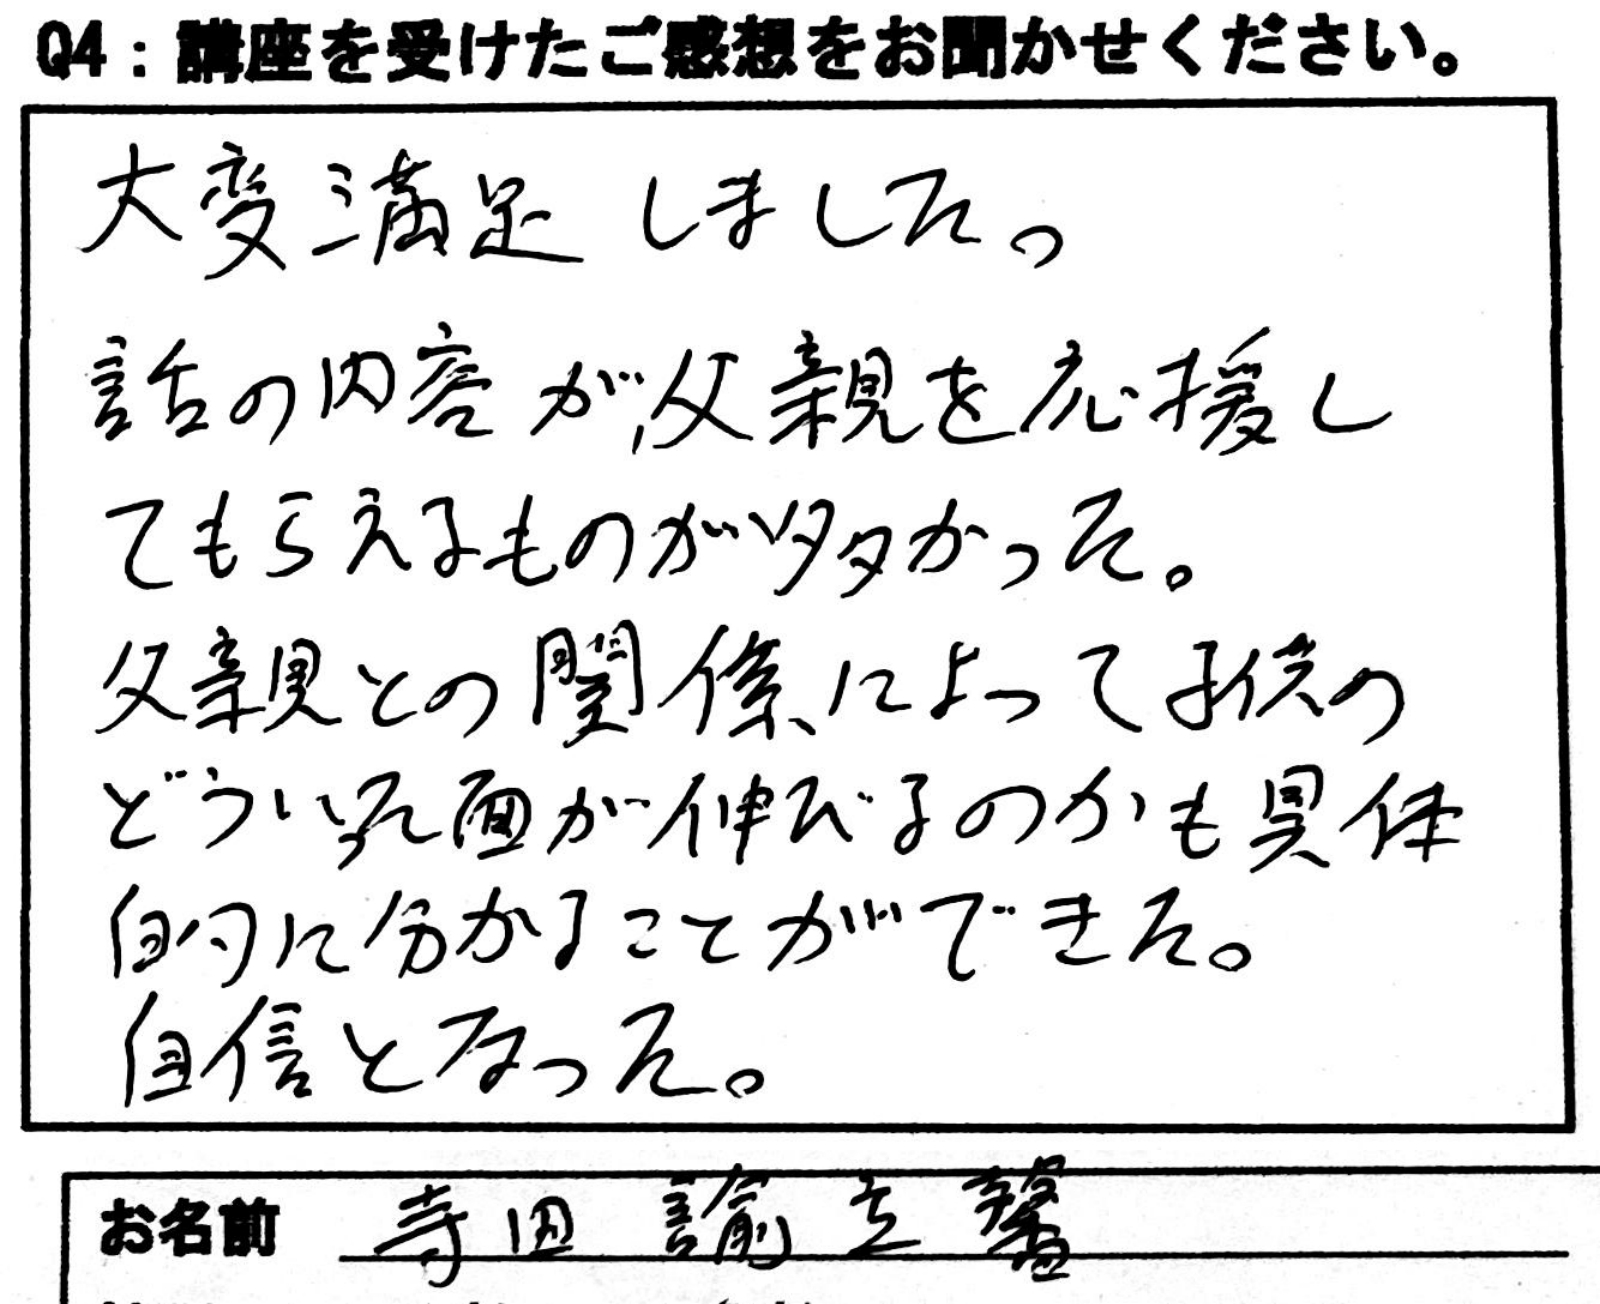 Q4：講座を受けたご感想をお聞かせください。
大変満足しました。
話の内容が、父親を応援し
てもらえるものが多かった。
父親との関係によって子供の
どういった面が伸びるのかも具体
的に分かることができた。
自信となった。
お名前 寺田 諭志